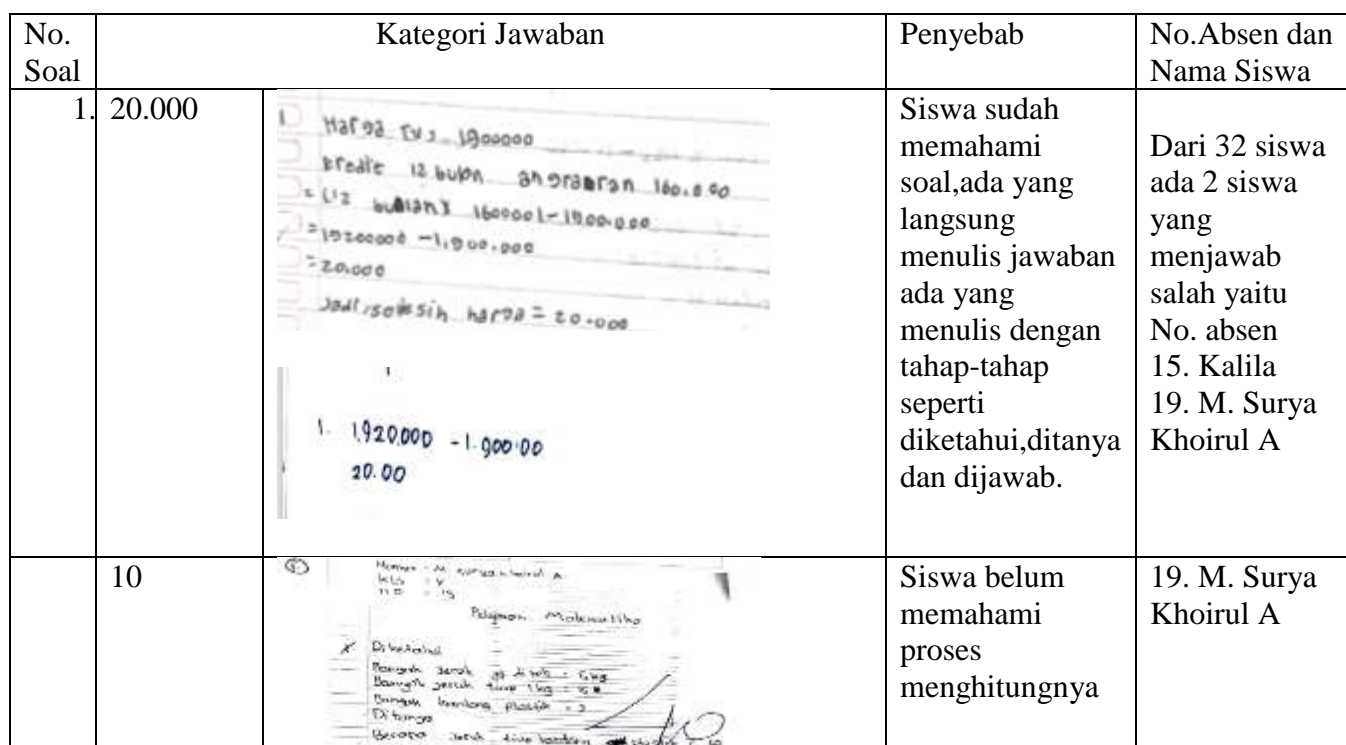 No.
Soal
Kategori Jawaban
Penyebab
No.Absen dan
Nama Siswa
1.
20.000
1 Harga TV = 1900000
kredit 12 bulan angsuran 160.000
= (12 bulan x 160000) - 1900.000
= 19200000 - 1.900.000
= 20.000
Jadi, selisih harga = 20.000
1. 1.920.000 - 1.900.00
20.00
Siswa sudah
memahami
soal,ada yang
langsung
menulis jawaban
ada yang
menulis dengan
tahap-tahap
seperti
diketahui,ditanya
dan dijawab.
Dari 32 siswa
ada 2 siswa
yang
menjawab
salah yaitu
No. absen
15. Kalila
19. M. Surya
Khoirul A
10
M surya khoirul A
Kls : V
no : 19
Diketahui
Banyak jeruk
Banyak jeruk tiap 1 kg
Banyak kantong plastik = 3
Ditanya
Berapa jeruk tiap kantong
Siswa belum
memahami
proses
menghitungnya
19. M. Surya
Khoirul A